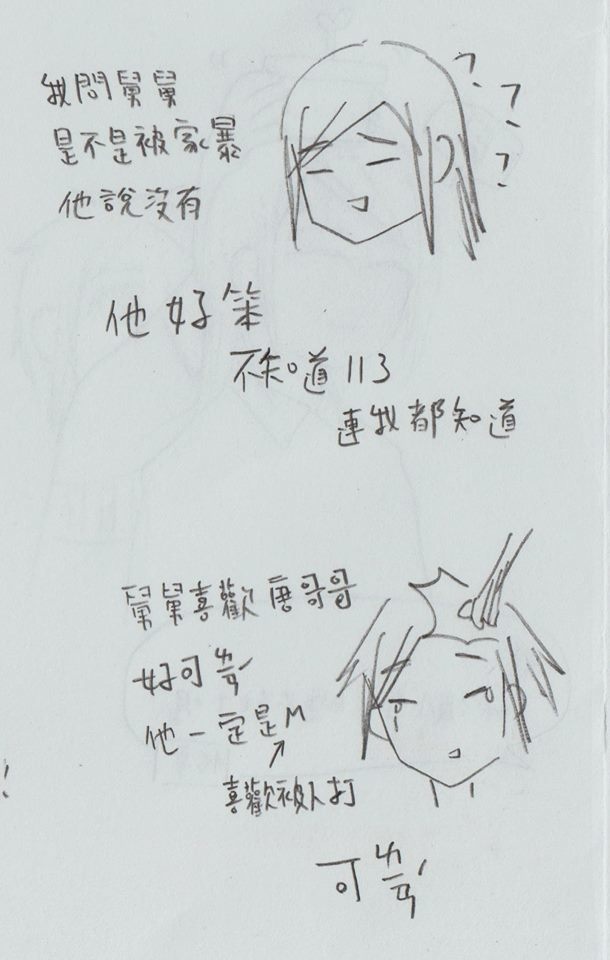 我問舅舅
是不是被家暴
他說沒有
? ? ?
他好笨
不知道113
連我都知道
舅舅喜歡唐哥哥
好可ㄌㄧㄢˊ
他一定是M
喜歡被人打
可ㄌㄧㄢˊ
!